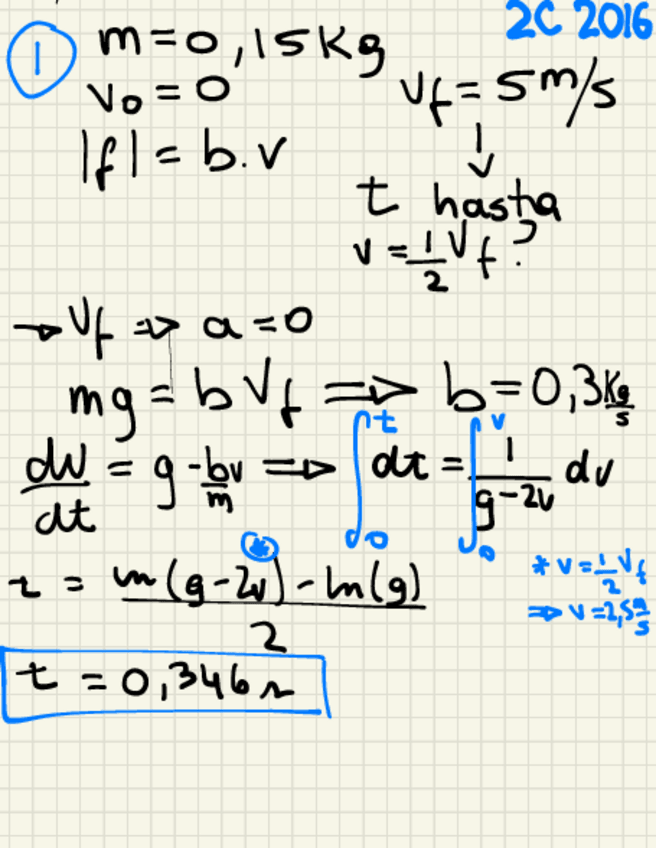 2C 2016
1
m = 0,15 Kg
v₀ = 0
|f| = b.v
v_f = 5 m/s
↓
t hasta
v = 1/2 v_f ?
→ v_f ⇒ a = 0
mg = b v_f ⇒ b = 0,3 Kg/s
dv/dt = g - bv/m ⇒ ∫₀ᵗ dt = ∫₀ᵛ 1/(g-2v) dv
t = (ln(g-2v)* - ln(g))/2
* v = 1/2 v_f
⇒ v = 2,5 m/s
t = 0,346 s